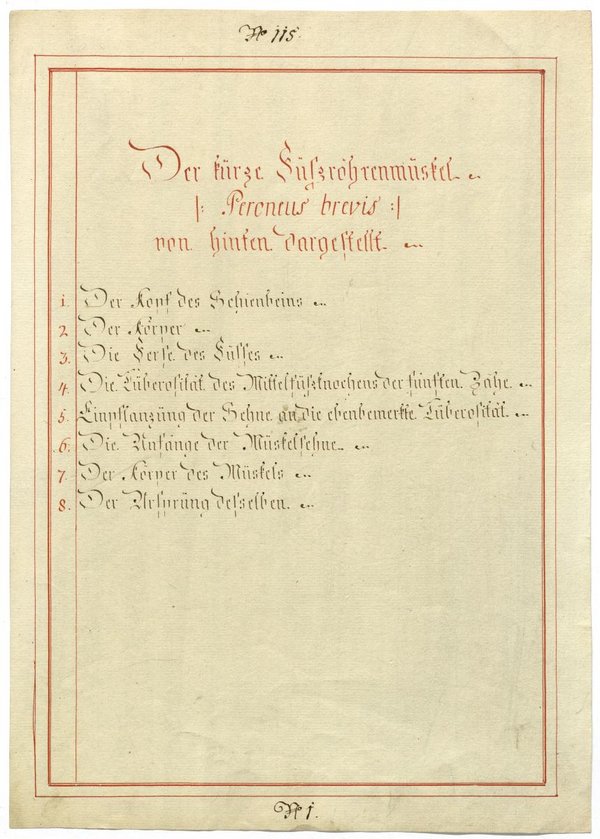 No 115.
Der kürze Füſzröhrenmüskel.
|: Peroneus brevis :|
von hinten dargeſtellt.
1. Der Kopf des Schienbeins
2. Der Körper
3. Die Ferſe des Füſses
4. Die Tüberoſität des Mittelfüſzknochens der fünften Zähe.
5. Einpflanzüng der Sehne an die ebenbemerkte Tüberoſität.
6. Die Anfänge der Müskelſehne.
7. Der Körper des Müskels
8. Der Urſprüng deſselben.
No 1.